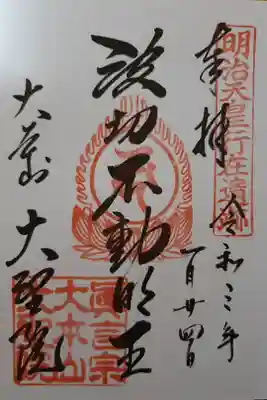 明治天皇行在遺跡
奉拝 令和三年
一月廿四日
波切不動明王
大本山 大聖院
眞言宗
大本山